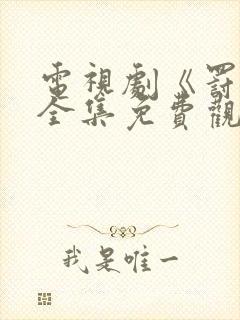 電視劇《罰
全集免費觀
我是唯一